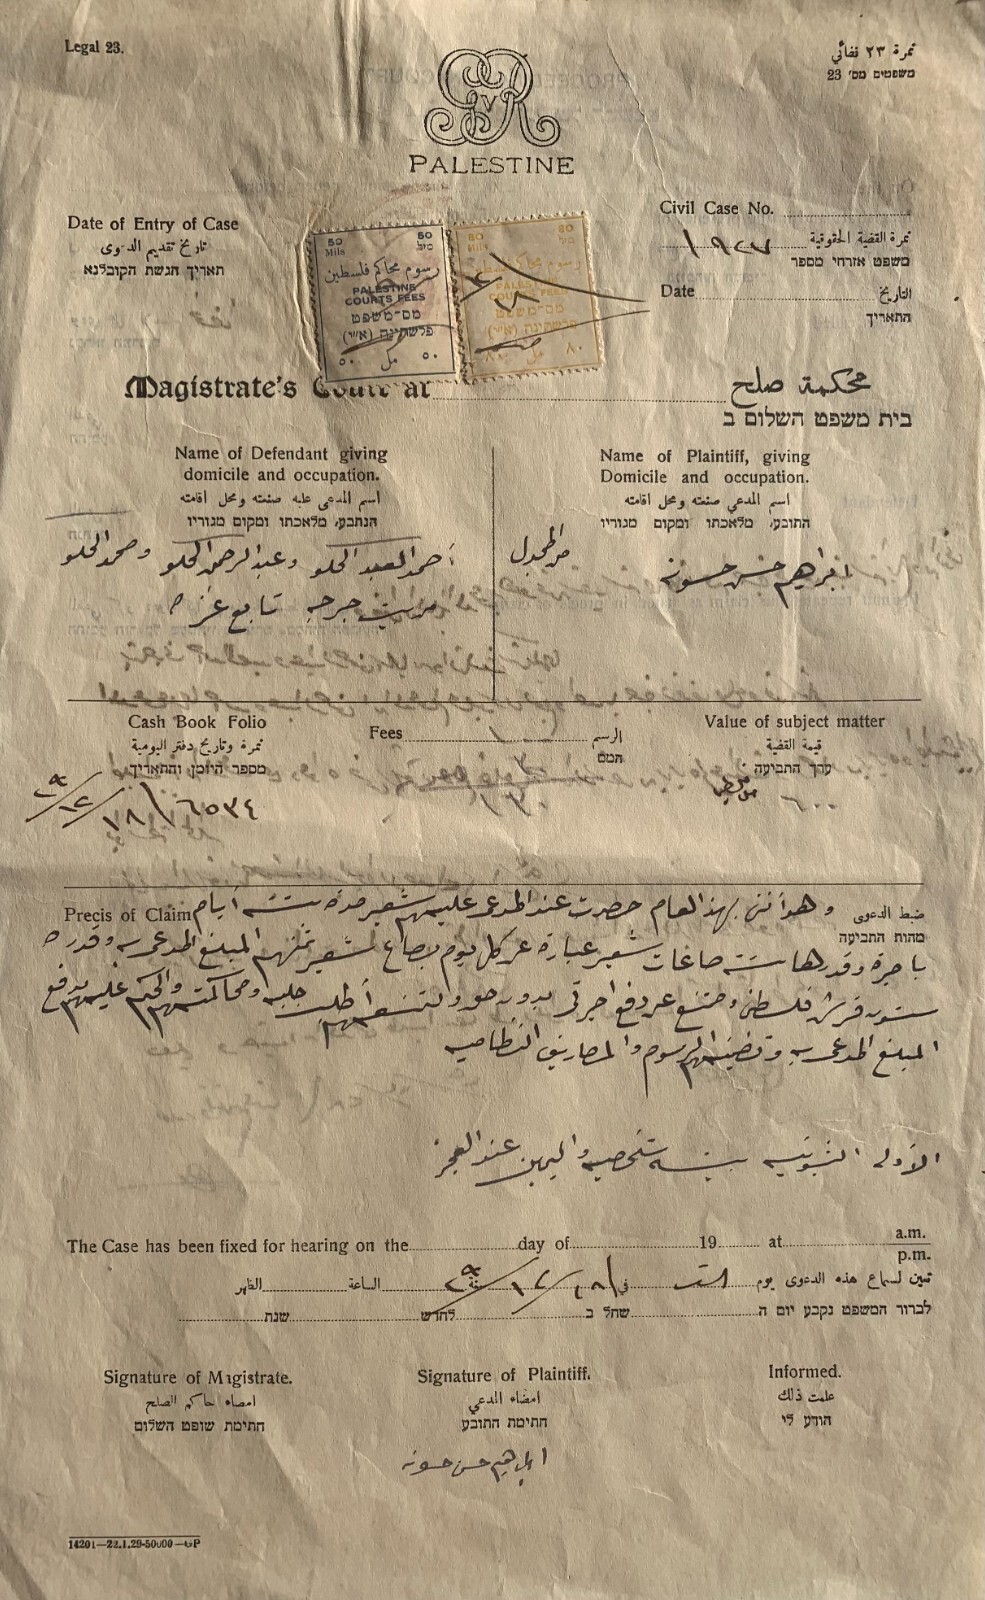 Legal 23.
نمرة ٢٣ قضائي
משפטים מס׳ 23
GVR
PALESTINE
Date of Entry of Case
تاريخ تقديم الدعوى
תאריך הגשת הקובלנא
Civil Case No.
نمرة القضية الحقوقية
משפט אזרחי מספר
Date
التاريخ
התאריך
50 Mils
50 מיל
رسوم محاكم فلسطين
PALESTINE
COURTS FEES
מס-משפט
פלשתינה (א״י)
٥٠ مل ٥٠
80 Mils
80
رسوم محاكم فلسطين
PALESTINE
COURTS FEES
מס-משפט
פלשתינה (א״י)
٨٠ مل ٨٠
Magistrate's Court at
محكمة صلح
בית משפט השלום ב
Name of Plaintiff, giving
Domicile and occupation.
اسم المدعي صنعته ومحل اقامته
התובע, מלאכתו ומקום מגוריו
ابراهيم حسن حسونه من المجدل
Name of Defendant giving
domicile and occupation.
اسم المدعى عليه صنعته ومحل اقامته
הנתבע, מלאכתו ומקום מגוריו
أحمد العبد الحلو وعبد الرحمن الحلو ومحمد الحلو
من بيت جرجه تابع غزه
Value of subject matter
قيمة القضية
ערך התביעה
٦٠٠
Fees
الرسم
המס
Cash Book Folio
نمرة وتاريخ دفتر اليومية
מספר היומן והתאריך
٢٩/١٢/١٨
Precis of Claim
ضبط الدعوى
מהות התביעה
بهذا العام حصدت عند المدعى عليهم شعير مدة ستة أيام
باجرة وقدرها ستة صاعات شعير عبارة عن كل يوم بصاع شعير ثمنهم المبلغ المدعى به وقدره
ستون قرش فلسطيني عن دفع اجرتي بدون حق أطلب جلبهم ومحاكمتهم والحكم عليهم بدفع
المبلغ المدعى به وتضمينهم الرسوم والمصاريف النظامية
الأدلة الثبوتية بينه شخصيه واليمين عند العجز
The Case has been fixed for hearing on the day of 19 at a.m.
p.m.
تعين لسماع هذه الدعوى يوم السبت في ٢٨/١٢/سنة ٢٩ الساعة الظهر
לברור המשפט נקבע יום ה שחל ב לחדש שנת
Signature of Magistrate.
امضاء حاكم الصلح
חתימת שופט השלום
Signature of Plaintiff.
امضاء المدعي
חתימת התובע
ابراهيم حسن حسونه
Informed.
علمت ذلك
הודע לי
14201—22.1.29-50000—GP